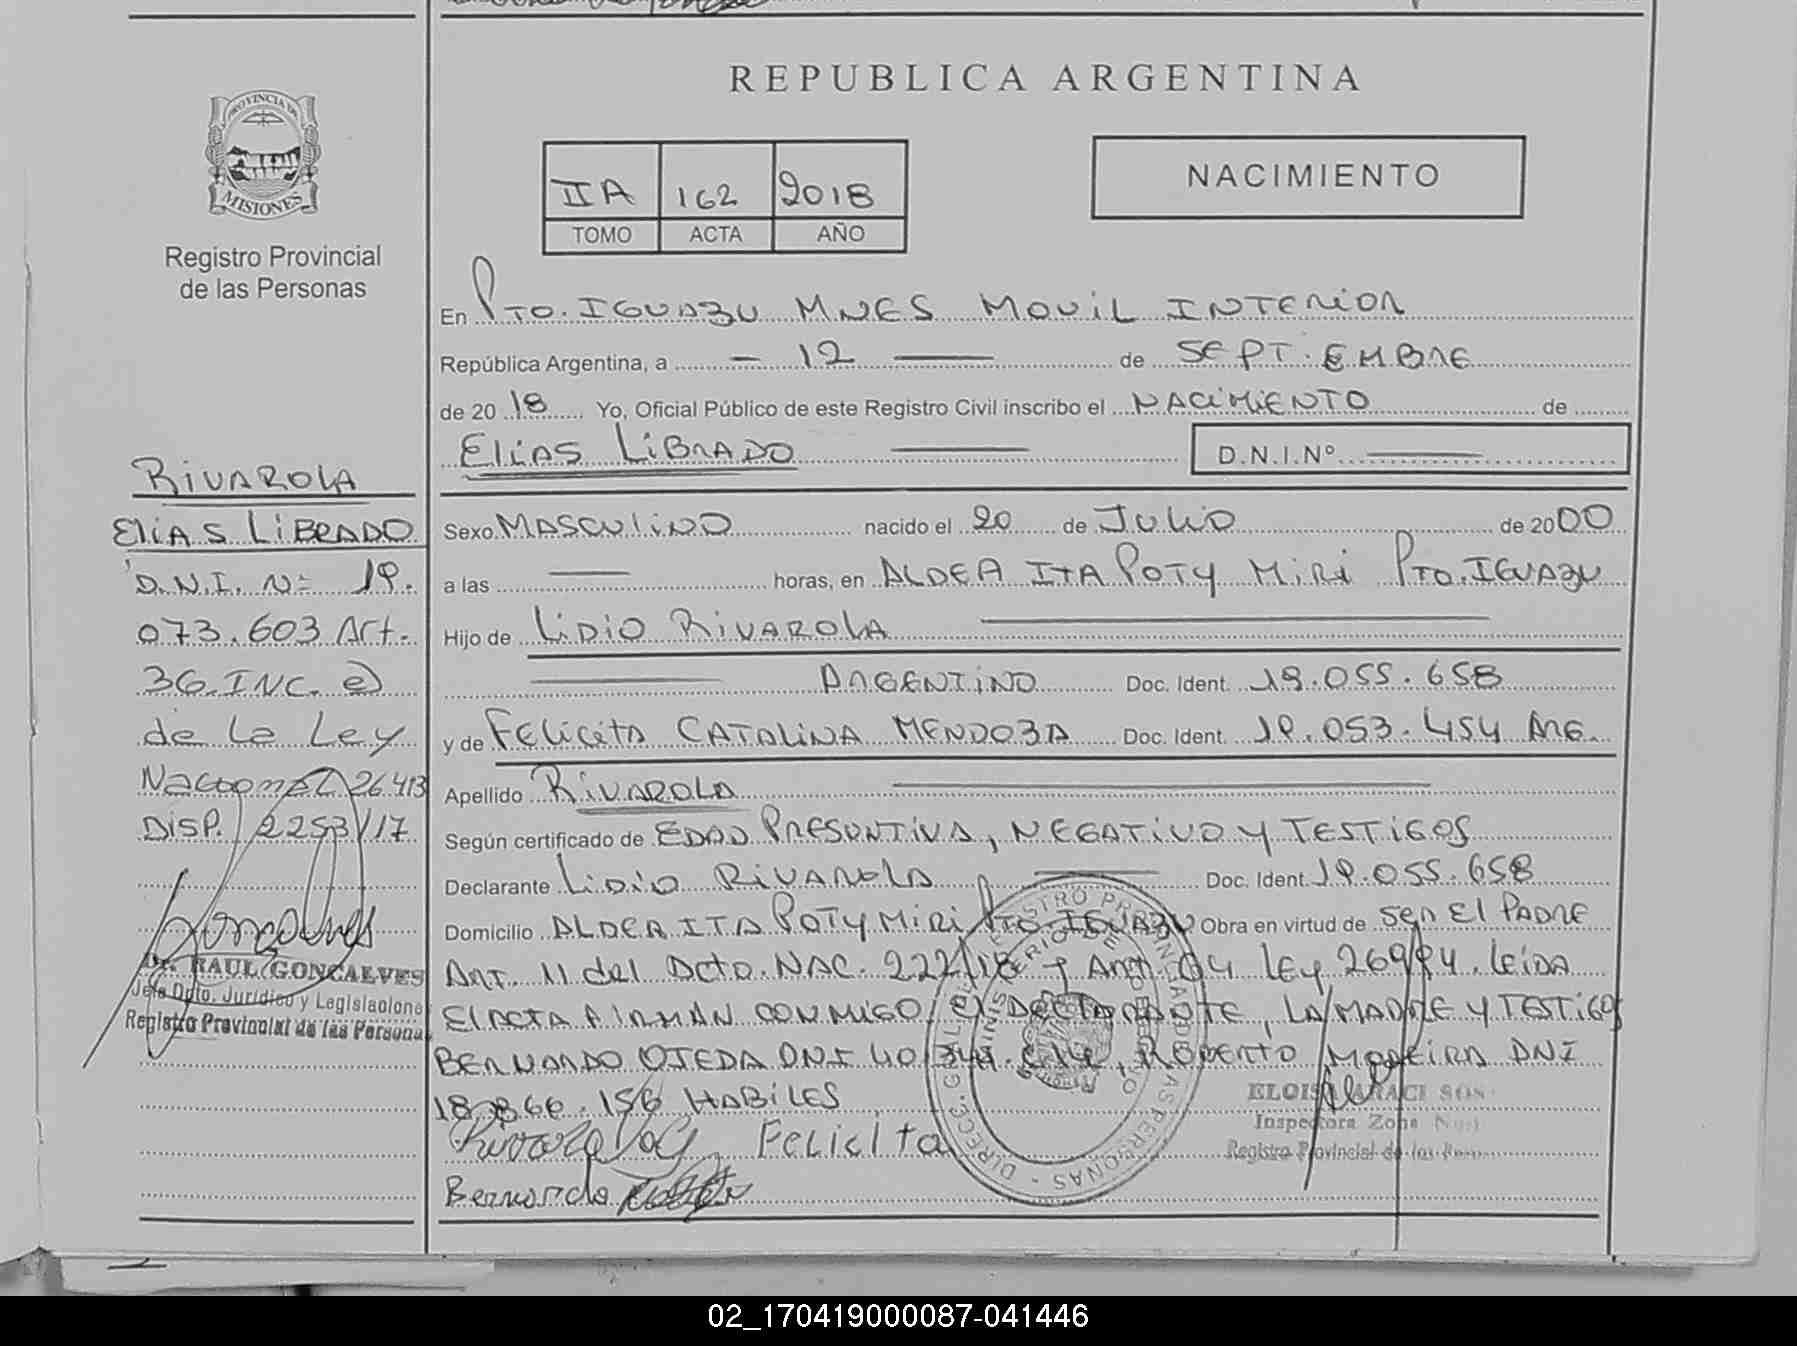 REPUBLICA ARGENTINA
PROVINCIA DE
MISIONES
Registro Provincial
de las Personas
IIA 162 2018
TOMO ACTA AÑO
NACIMIENTO
En PTO. IGUAZU MNES MOVIL INTERIOR
República Argentina, a 12 de SEPTIEMBRE
de 20 18 Yo, Oficial Público de este Registro Civil inscribo el NACIMIENTO de
ELIAS LIBRADO
D.N.I.Nº
Sexo MASCULINO nacido el 20 de JULIO de 2000
a las horas, en ALDEA ITA POTY MIRI PTO. IGUAZU
Hijo de LIDIO RIVAROLA
ARGENTINO Doc. Ident. 19.055.658
y de FELICITA CATALINA MENDOZA Doc. Ident. 19.053.454 ARG.
Apellido RIVAROLA
Según certificado de EDAD PRESUNTIVA, NEGATIVO Y TESTIGOS
Declarante LIDIO RIVAROLA Doc. Ident. 19.055.658
Domicilio ALDEA ITA POTY MIRI PTO. IGUAZU Obra en virtud de SER EL PADRE
ART. 11 del Dcto. NAC. 222/18 y Art. 04 Ley 26994. LEIDA
EL ACTA FIRMAN CONMIGO el DECLARANTE, LA MADRE Y TESTIGOS
BERNARDO OJEDA DNI 40. , ROBERTO MOREIRA DNI
18.866.156 HABILES
Felicita
Bernardo
RIVAROLA
ELIAS LIBRADO
D.N.I. Nº 19.
073.603 Art.
36 INC. e)
de la Ley
Nacional 26.413
DISP. 2253/17
Dr. RAUL GONCALVES
Jefe Dpto. Jurídico y Legislaciones
Registro Provincial de las Personas
ELOISA ARACI SOS
Inspectora Zona
Registro Provincial de las
02_170419000087-041446